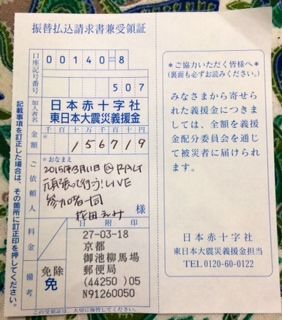 振替払込請求書兼受領証
口座記号番号
00140=8
507
加入者名
日本赤十字社
東日本大震災義援金
金額
千百十万千百十円
156719
ご依頼人
おなまえ
2015年3月11日@RALT
頑張って行こう!LIVE
参加者一同
様
料金
免除
免
備考
27-03-18
京都
御池柳馬場
郵便局
(44250)05
N91260050
記載事項を訂正した場合は、その箇所に訂正印を押してください。
＊ご協力いただく皆様へ＊
(裏面も必ずお読みください。)
みなさまから寄せられ
た義援金につきまし
ては、全額を義援
金配分委員会を通じ
て被災者に届けられ
ます。
日本赤十字社
東日本大震災義援金担当
TEL.0120-60-0122